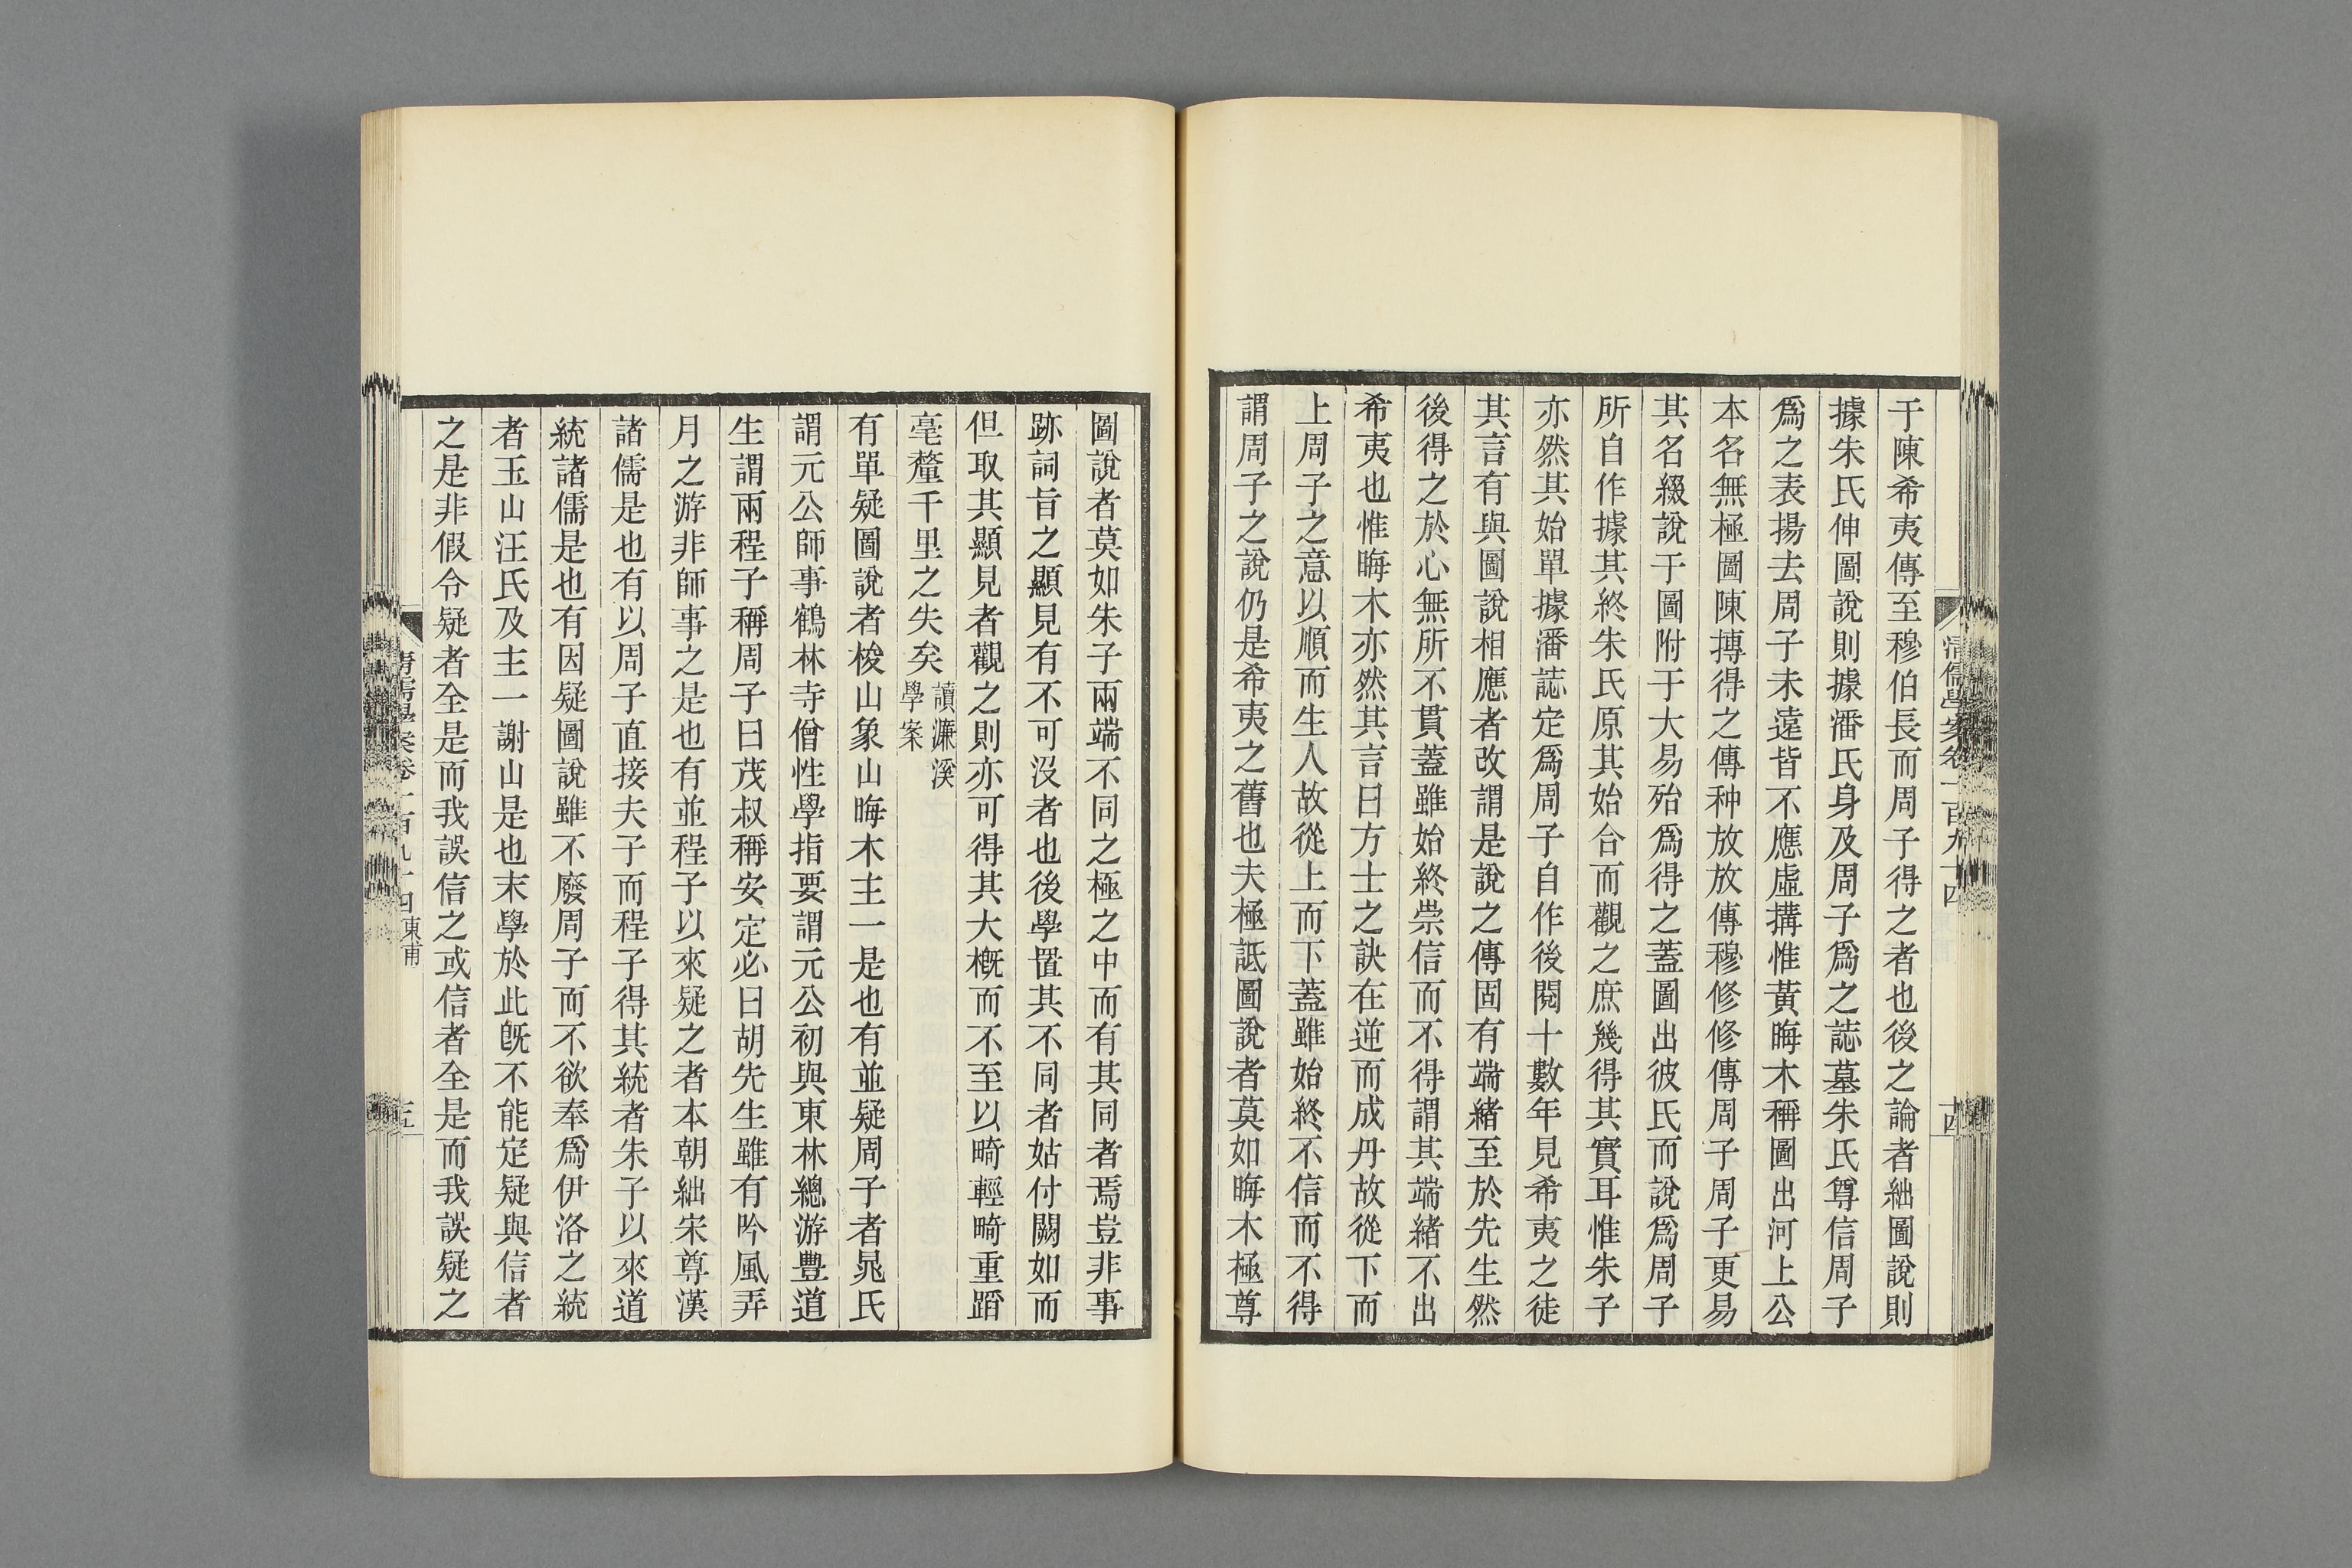 清儒學案卷一百九十四
十四
于陳希夷傳至穆伯長而周子得之者也後之論者絀圖說則
據朱氏伸圖說則據潘氏身及周子爲之誌墓朱氏尊信周子
爲之表揚去周子未遠皆不應虛搆惟黃晦木稱圖出河上公
本名無極圖陳摶得之傳种放放傳穆修修傳周子周子更易
其名綴說于圖附于大易殆爲得之蓋圖出彼氏而說爲周子
所自作據其終朱氏原其始合而觀之庶幾得其實耳惟朱子
亦然其始單據潘誌定爲周子自作後閱十數年見希夷之徒
其言有與圖說相應者改謂是說之傳固有端緒至於先生然
後得之於心無所不貫蓋雖始終崇信而不得謂其端緒不出
希夷也惟晦木亦然其言曰方士之訣在逆而成丹故從下而
上周子之意以順而生人故從上而下蓋雖始終不信而不得
謂周子之說仍是希夷之舊也夫極詆圖說者莫如晦木極尊
圖說者莫如朱子兩端不同之極之中而有其同者焉豈非事
跡詞旨之顯見有不可沒者也後學置其不同者姑付闕如而
但取其顯見者觀之則亦可得其大槪而不至以畸輕畸重蹈
毫釐千里之失矣讀濂溪學案
有單疑圖說者梭山象山晦木主一是也有並疑周子者晁氏
謂元公師事鶴林寺僧性學指要謂元公初與東林總游豐道
生謂兩程子稱周子曰茂叔稱安定必曰胡先生雖有吟風弄
月之游非師事之是也有並程子以來疑之者本朝絀宋尊漢
諸儒是也有以周子直接夫子而程子得其統者朱子以來道
統諸儒是也有因疑圖說雖不廢周子而不欲奉爲伊洛之統
者玉山汪氏及主一謝山是也末學於此旣不能定疑與信者
之是非假令疑者全是而我誤信之或信者全是而我誤疑之
清儒學案卷一百九十四東甫